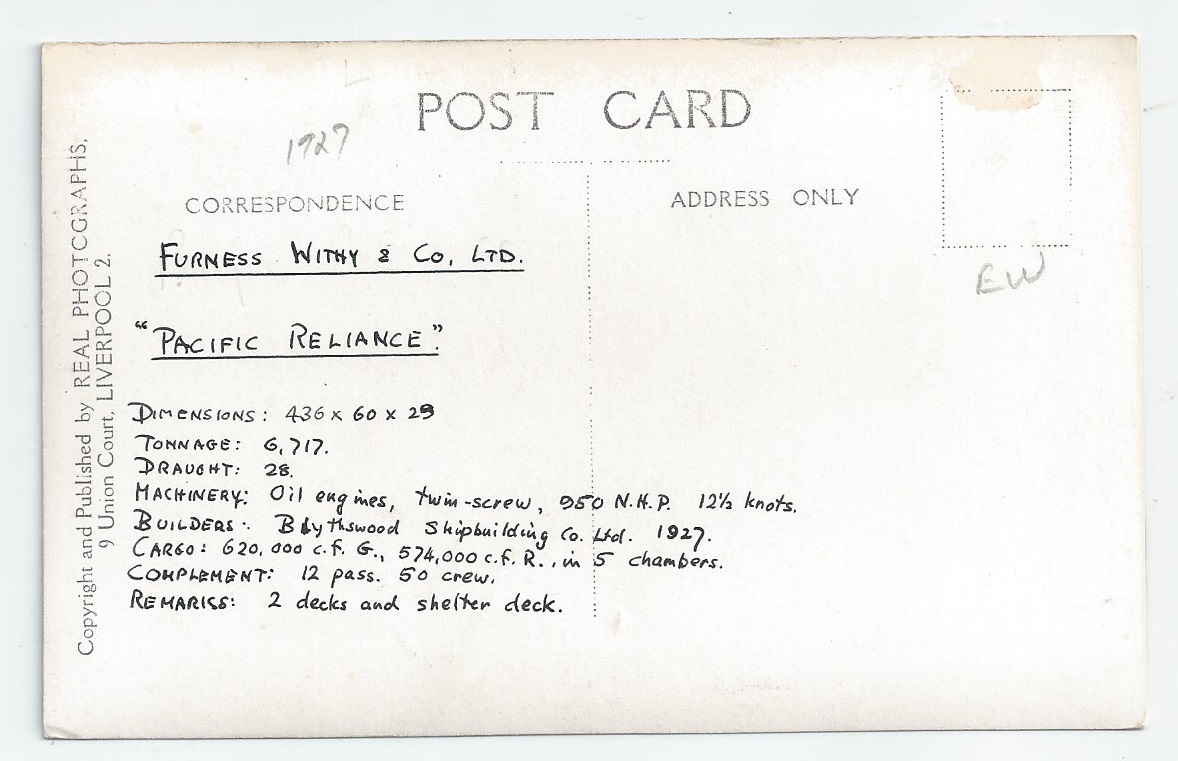 POST CARD
1927
CORRESPONDENCE
ADDRESS ONLY
EW
FURNESS WITHY & CO, LTD.
"PACIFIC RELIANCE".
DIMENSIONS: 436 x 60 x 29
TONNAGE: 6,717.
DRAUGHT: 28.
MACHINERY: Oil engines, twin-screw, 950 N.H.P. 12½ knots.
BUILDERS: Blythswood Shipbuilding Co. Ltd. 1927.
CARGO: 620,000 c.f. G., 574,000 c.f. R., in 5 chambers.
COMPLEMENT: 12 pass. 50 crew.
REMARKS: 2 decks and shelter deck.
Copyright and Published by REAL PHOTOGRAPHS,
9 Union Court, LIVERPOOL 2.